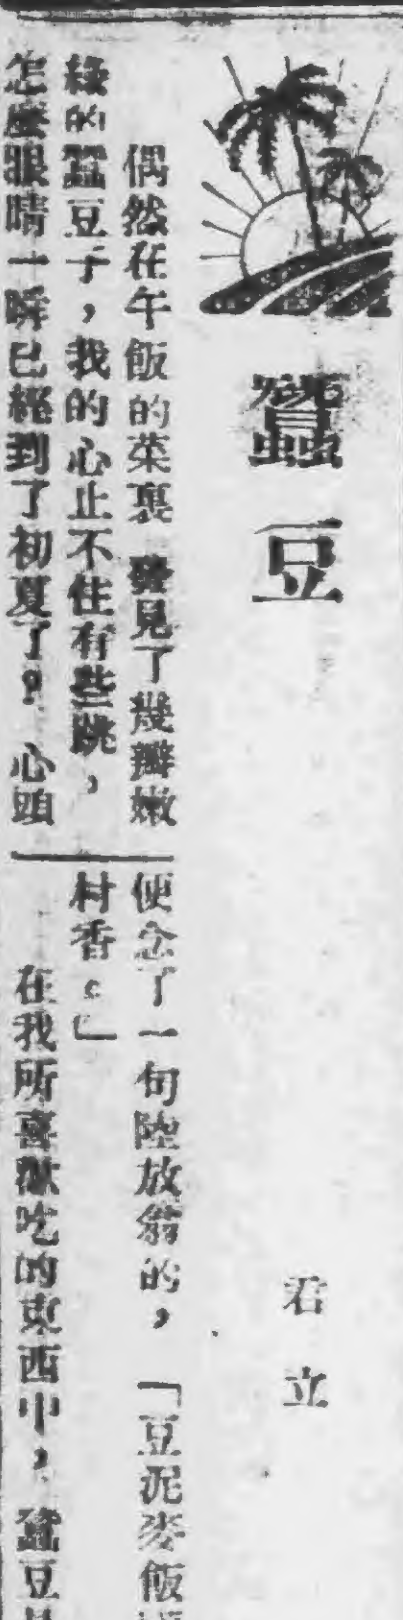 蠶豆
君立
偶然在午飯的菜裏 發見了幾瓣嫩
綠的蠶豆子，我的心止不住有些跳，
怎麼眼睛一瞬已經到了初夏了？ 心頭
便念了一句陸放翁的，「豆泥麥飯
村香。」
在我所喜歡吃的東西中，蠶豆